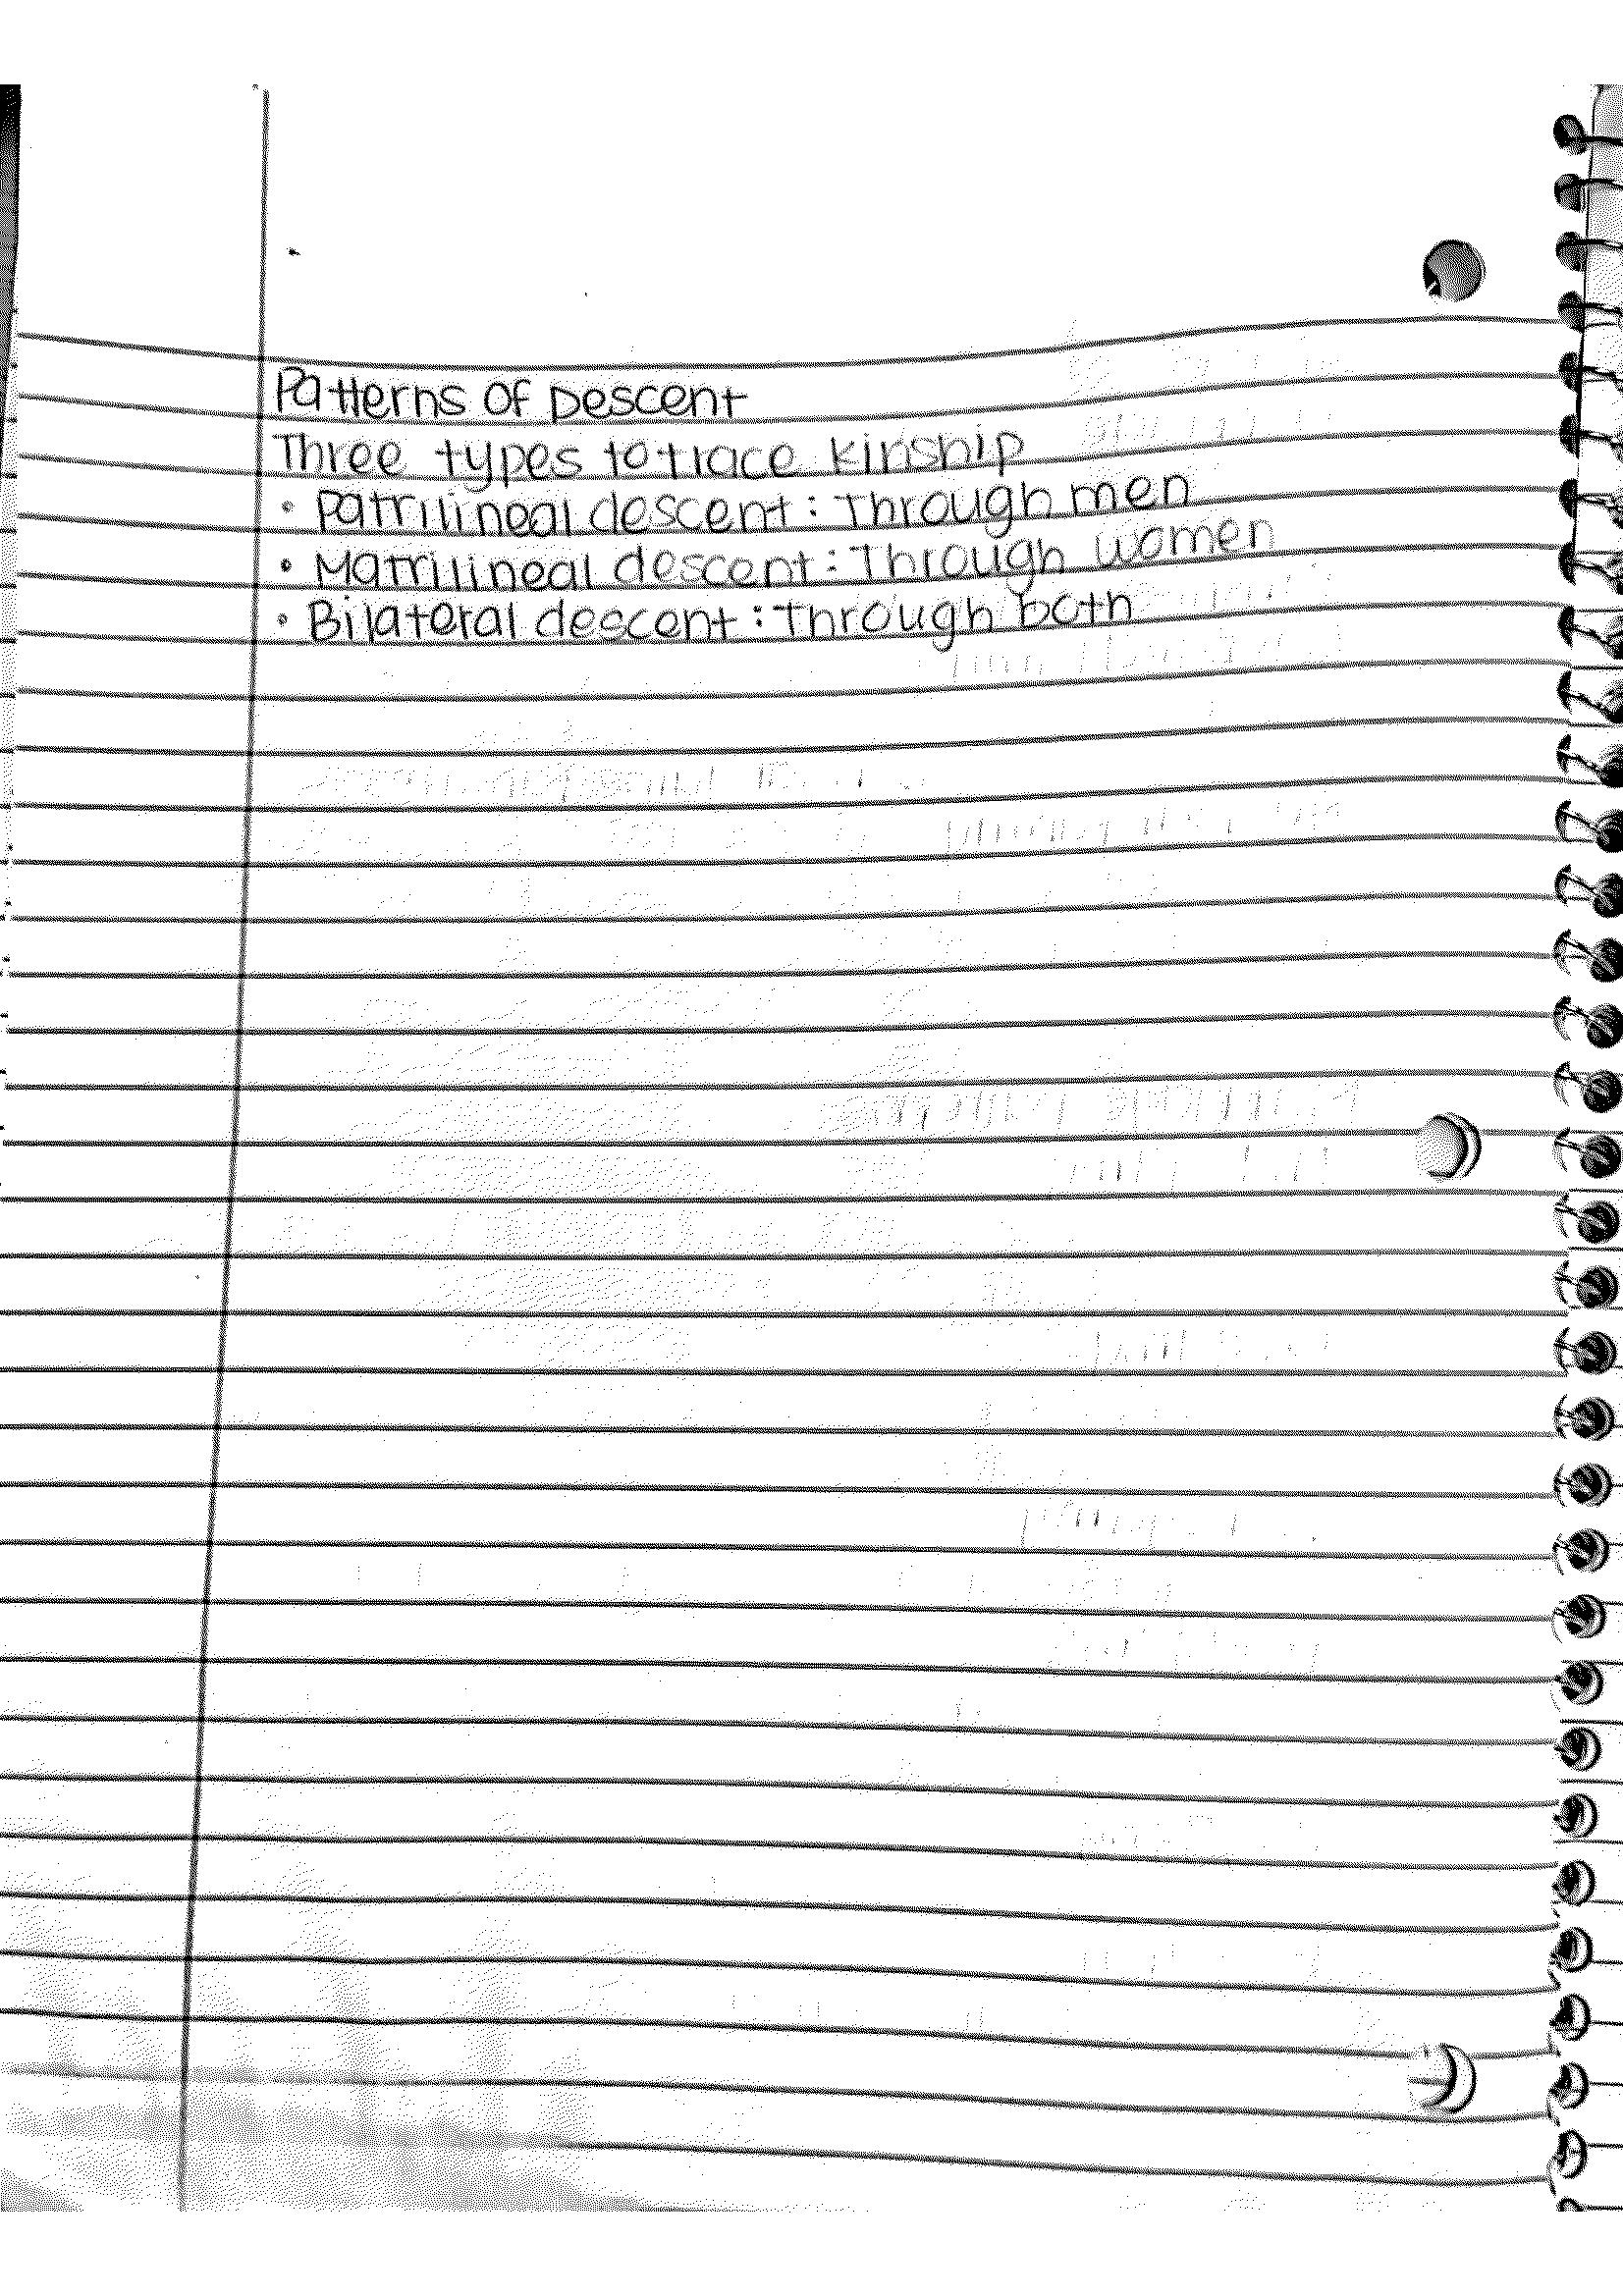 Patterns of Descent
Three types to trace kinship
• Patrilineal descent: Through men
• Matrilineal descent: Through women
• Bilateral descent: Through both